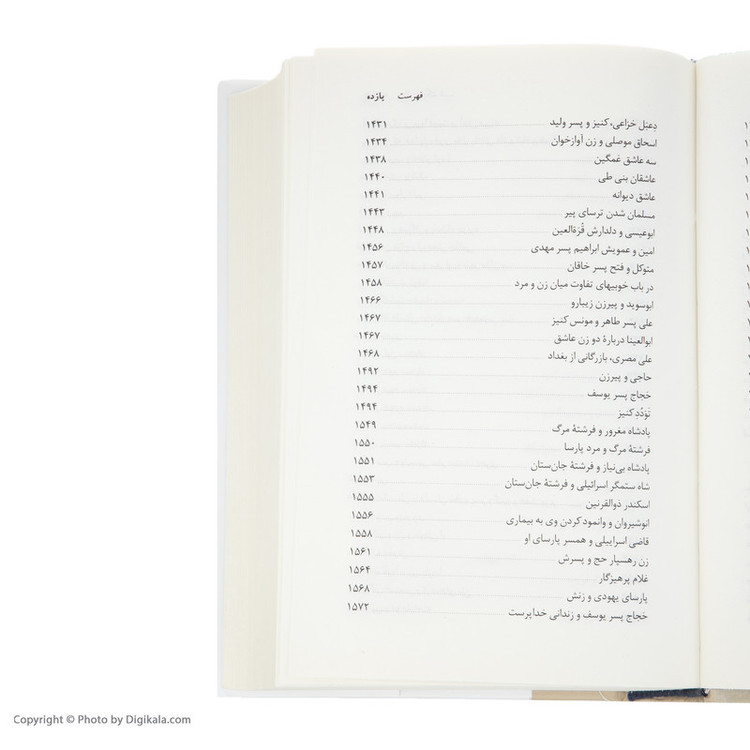 فهرست یازده
دِعبَل خزاعی، کنیز و پسر ولید ۱۴۳۱
اسحاق موصلی و زن آوازخوان ۱۴۳۴
سه عاشق غمگین ۱۴۳۸
عاشقان بنی طی ۱۴۴۰
عاشق دیوانه ۱۴۴۱
مسلمان شدن ترسای پیر ۱۴۴۳
ابوعیسی و دلدارش قُرَةالعین ۱۴۴۸
امین و عمویش ابراهیم پسر مهدی ۱۴۵۶
متوکل و فتح پسر خاقان ۱۴۵۷
در باب خوبیهای تفاوت میان زن و مرد ۱۴۵۸
ابوسوید و پیرزن زیبارو ۱۴۶۶
علی پسر طاهر و مونس کنیز ۱۴۶۷
ابوالعینا دربارهٔ دو زن عاشق ۱۴۶۷
علی مصری، بازرگانی از بغداد ۱۴۶۸
حاجی و پیرزن ۱۴۹۲
حَجاج پسر یوسف ۱۴۹۴
تَوَدُّدِ کنیز ۱۴۹۴
پادشاه مغرور و فرشتهٔ مرگ ۱۵۴۹
فرشتهٔ مرگ و مرد پارسا ۱۵۵۰
پادشاه بی‌نیاز و فرشتهٔ جان‌ستان ۱۵۵۱
شاه ستمگر اسرائیلی و فرشتهٔ جان‌ستان ۱۵۵۳
اسکندر ذوالقرنین ۱۵۵۵
انوشیروان و وانمود کردن وی به بیماری ۱۵۵۶
قاضی اسراییلی و همسر پارسای او ۱۵۵۸
زن رهسپار حج و پسرش ۱۵۶۱
غلام پرهیزگار ۱۵۶۴
پارسای یهودی و زنش ۱۵۶۸
حَجاج پسر یوسف و زندانی خداپرست ۱۵۷۲
Copyright © Photo by Digikala.com